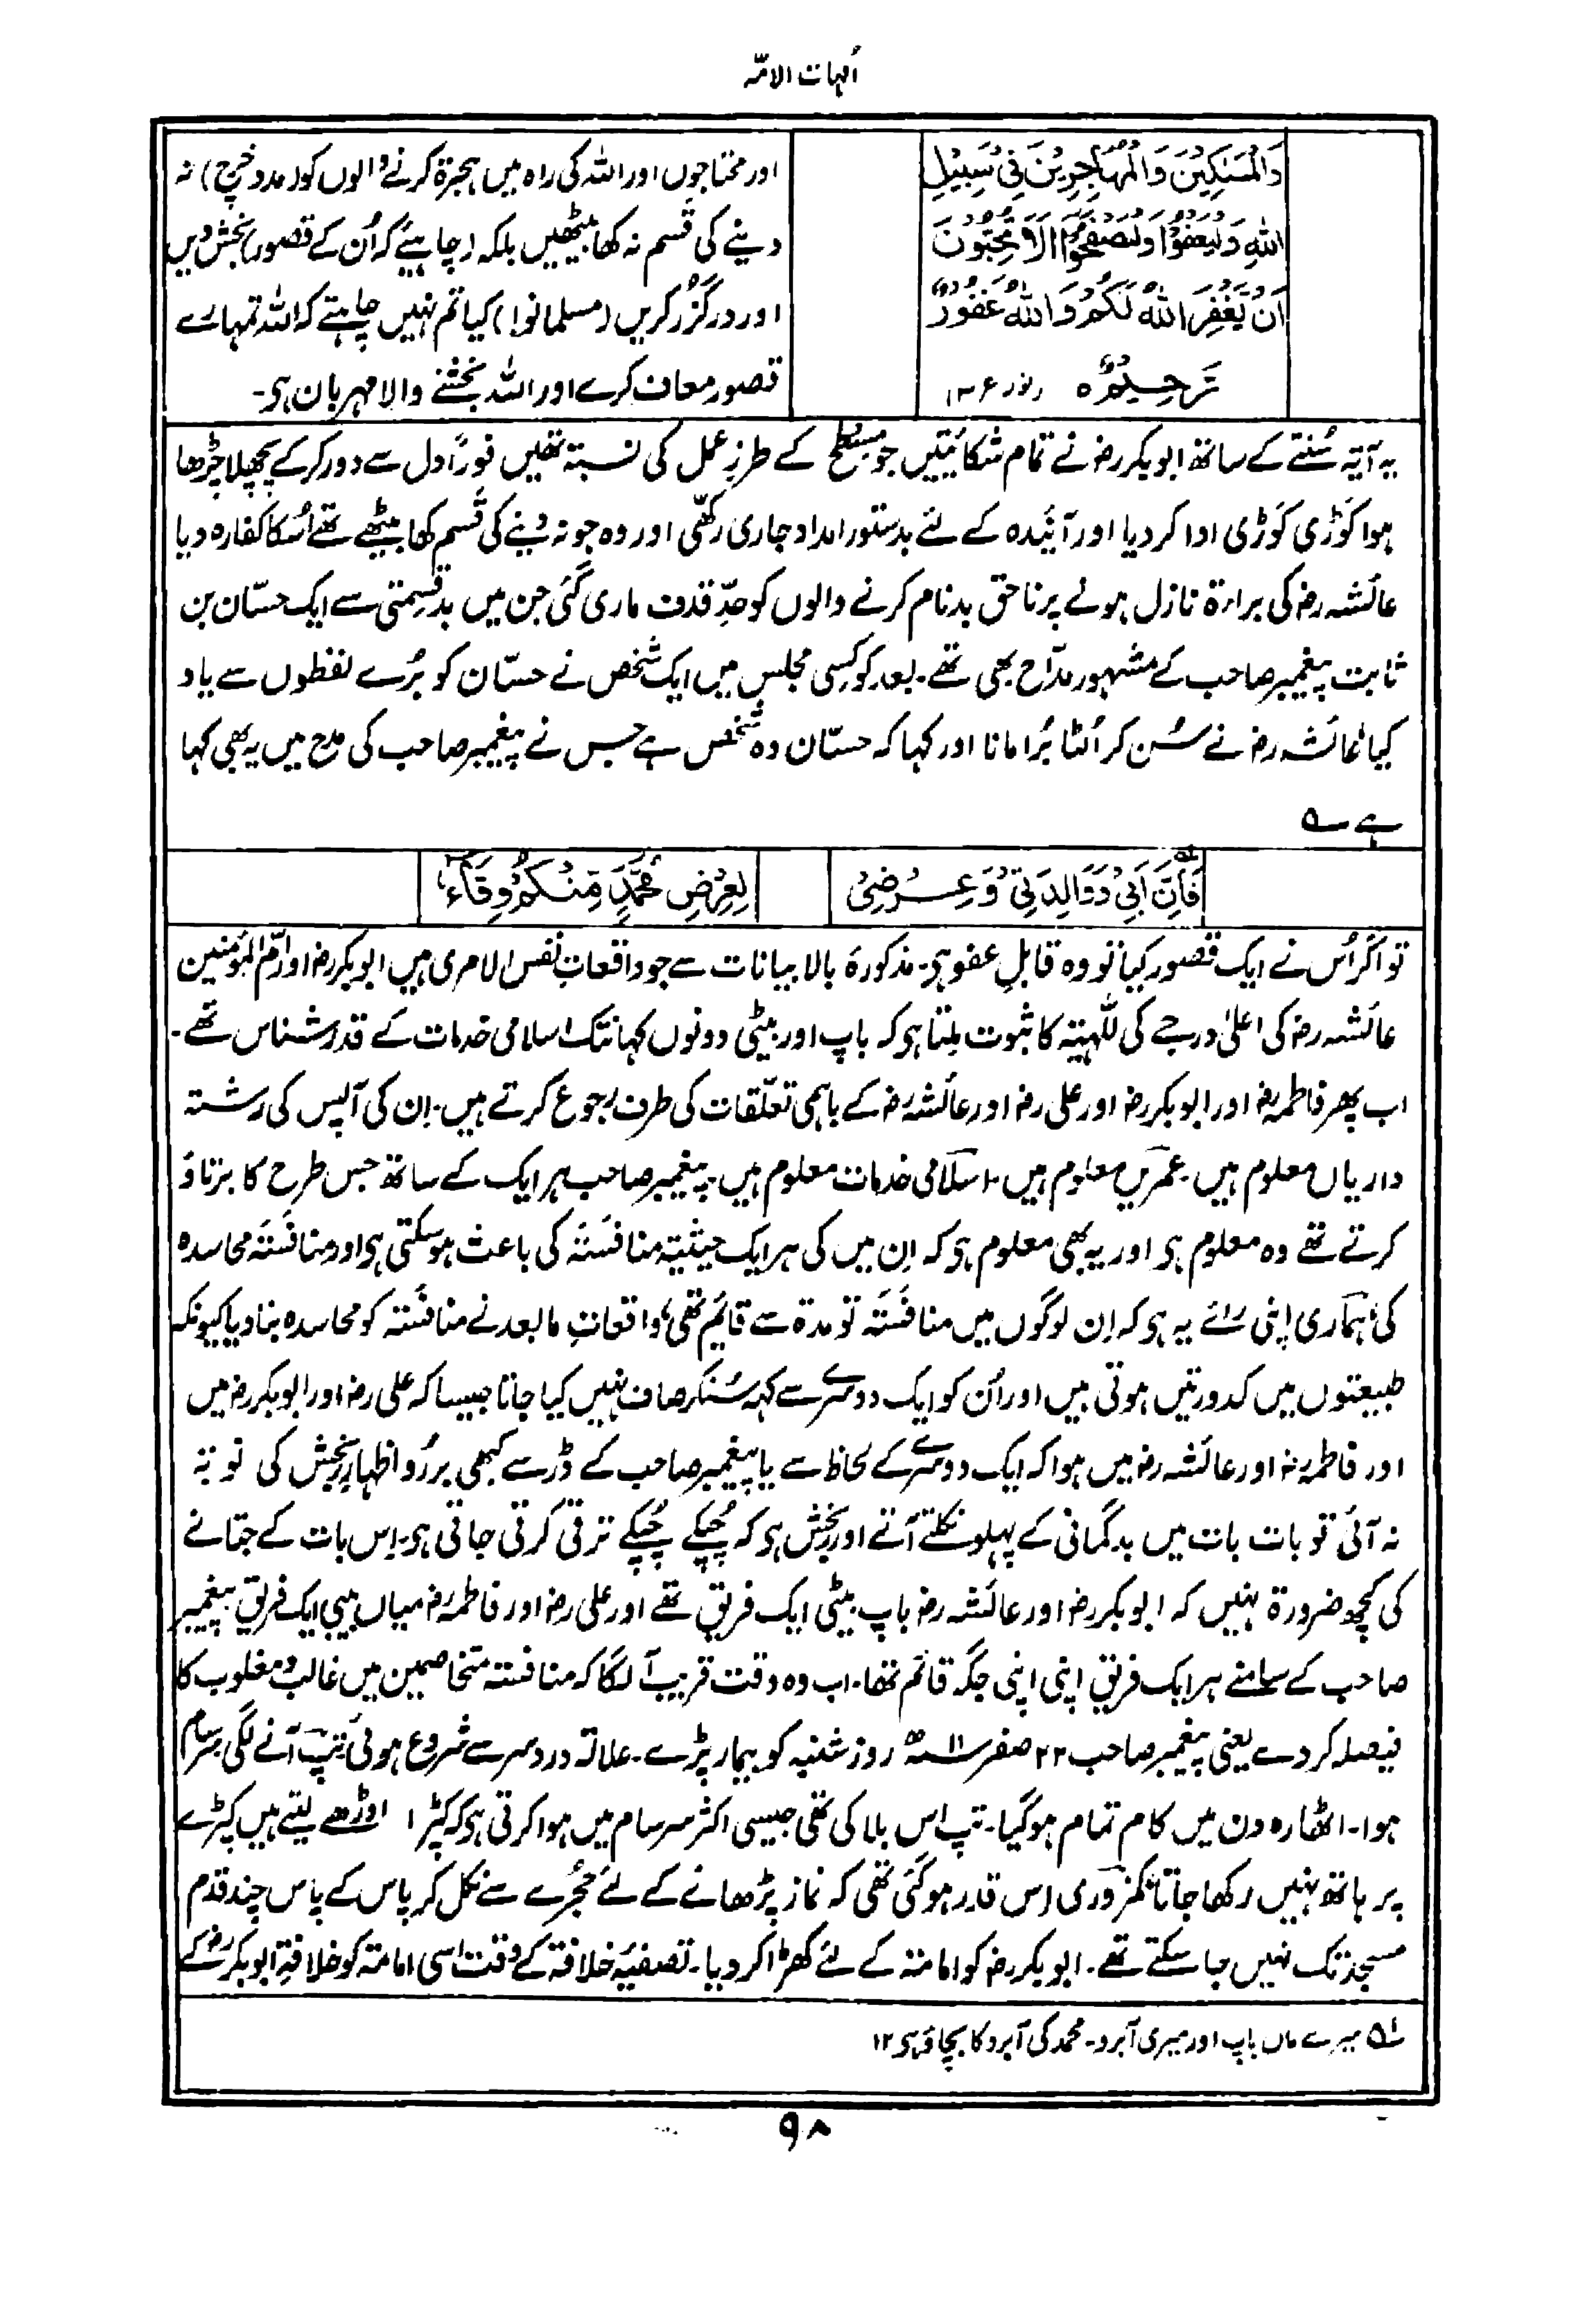 اُمہات الامّہ
وَالْمَسٰكِيْنَ وَالْمُهَاجِرِيْنَ فِيْ سَبِيْلِ
اللّٰهِ وَلْيَعْفُوْا وَلْيَصْفَحُوْا اَلَا تُحِبُّوْنَ
اَنْ يَّغْفِرَ اللّٰهُ لَكُمْ وَاللّٰهُ غَفُوْرٌ
رَّحِيْمٌ ۝ (نور ع ۳)
اور محتاجوں اور اللہ کی راہ میں ہجرۃ کرنے والوں کو (مدد خرچ) نہ
دینے کی قسم نہ کھا بیٹھیں بلکہ (چاہیئے کہ اُن کے قصور) بخش دیں
اور درگزر کریں (مسلمانو!) کیا تم نہیں چاہتے کہ اللہ تمہارے
قصور معاف کرے اور اللہ بخشنے والا مہربان ہی۔
یہ آیۃ سُنتے کے ساتھ ابوبکر رضہ نے تمام شکایتیں جو مسطح کے طرزِ عمل کی نسبتہ تھیں فوراً دل سے دور کرکے پچھلا چڑھا
ہوا کَوڑی کَوڑی ادا کر دیا اور آیندہ کے لئے بدستور امداد جاری رکھّی اور وہ جو نہ دینے کی قسم کھا بیٹھے تھے اُسکا کفارہ دیا
عائشہ رضہ کی براءۃ نازل ہونے پر ناحق بدنام کرنے والوں کو حدِّ قذف ماری گئی جن میں بدقسمتی سے ایک حسّان بن
ثابت پیغمبر صاحب کے مشہور مدّاح بھی تھے۔ بعد کو کسی مجلس میں ایک شخص نے حسّان کو بُرے لفظوں سے یاد
کیا عائشہ رضہ نے سُن کر اُلٹا بُرا مانا اور کہا کہ حسّان وہ شخص ہے جس نے پیغمبر صاحب کی مدح میں یہ بھی کہا
ہے ؎
فَاِنَّ اَبِيْ وَوَالِدَتِيْ وَعِرْضِيْ ۱؎ لِعِرْضِ مُحَمَّدٍ مِّنْكُمْ وِقَاءُ
تو اگر اُس نے ایک قصور کیا تو وہ قابلِ عفو ہی۔ مذکورۂ بالا بیانات سے جو واقعاتِ نفس الامری ہیں ابوبکر رضہ اور اُمّ المؤمنین
عائشہ رضہ کی اعلیٰ درجے کی للّٰہیتہ کا ثبوت ملتا ہی کہ باپ اور بیٹی دونوں کہانتک اسلامی خدمات کے قدر شناس تھے۔
اب پھر فاطمہ رضہ اور ابوبکر رضہ اور علی رضہ اور عائشہ رضہ کے باہمی تعلّقات کی طرف رجوع کرتے ہیں۔ اِن کی آپس کی رشتہ
داریاں معلوم ہیں۔ عمریں معلوم ہیں۔ اسلامی خدمات معلوم ہیں۔ پیغمبر صاحب ہر ایک کے ساتھ جس طرح کا برتاؤ
کرتے تھے وہ معلوم ہی اور یہ بھی معلوم ہی کہ اِن میں کی ہر ایک حیثیتہ منافستہ کی باعث ہو سکتی ہی اور منافستہ محاسدہ
کی ہماری اپنی رائے یہ ہی کہ اِن لوگوں میں منافستہ تو مدۃ سے قائم تھی واقعاتِ مابعد نے منافستہ کو محاسدہ بنا دیا کیونکہ
طبیعتوں میں کدورتیں ہوتی ہیں اور اُن کو ایک دوسرے سے کہہ سُنکر صاف نہیں کیا جاتا جیسا کہ علی رضہ اور ابوبکر رضہ میں
اور فاطمہ رضہ اور عائشہ رضہ میں ہوا کہ ایک دوسرے کے لحاظ سے یا پیغمبر صاحب کے ڈر سے کبھی بررُو اظہارِ رنجش کی نوبتہ
نہ آئی تو بات بات میں بدگمانی کے پہلو نکلتے آتے اور رنجش ہی کہ چُپکے چُپکے ترقی کرتی جاتی ہی۔ اِس بات کے جتانے
کی کچھ ضرورۃ نہیں کہ ابوبکر رضہ اور عائشہ رضہ باپ بیٹی ایک فریق تھے اور علی رضہ اور فاطمہ رضہ میاں بیبی ایک فریق پیغمبر
صاحب کے سامنے ہر ایک فریق اپنی اپنی جگہ قائم تھا۔ اب وہ وقت قریب آ لگا کہ منافستہ متخاصمین میں غالب و مغلوب کا
فیصلہ کر دے یعنی پیغمبر صاحب ۲۲ صفر سنہ ۱۱ھ روز شنبہ کو بیمار پڑے۔ علالۃ دردِ سر سے شروع ہوئی تپ آنے لگی سرسام
ہوا۔ اٹھارہ دن میں کام تمام ہوگیا۔ تپ اس بلا کی تھی جیسی اکثر سرسام میں ہوا کرتی ہی کہ کپڑا اوڑھے لیتے ہیں کپڑے
پر ہاتھ نہیں رکھا جاتا کمزوری اِس قدر ہوگئی تھی کہ نماز پڑھانے کے لئے حُجرے سے نکل کر پاس کے پاس چند قدم
مسجد تک نہیں جا سکتے تھے۔ ابوبکر رضہ کو امامتہ کے لئے کھڑا کر دیا۔ تصفیۂ خلافۃ کے وقت اسی امامتہ کو خلافۃِ ابوبکر رضہ کے
۱؎ میرے ماں باپ اور میری آبرو۔ محمد کی آبرو کا بچاؤ ہی ۱۲
۹۸